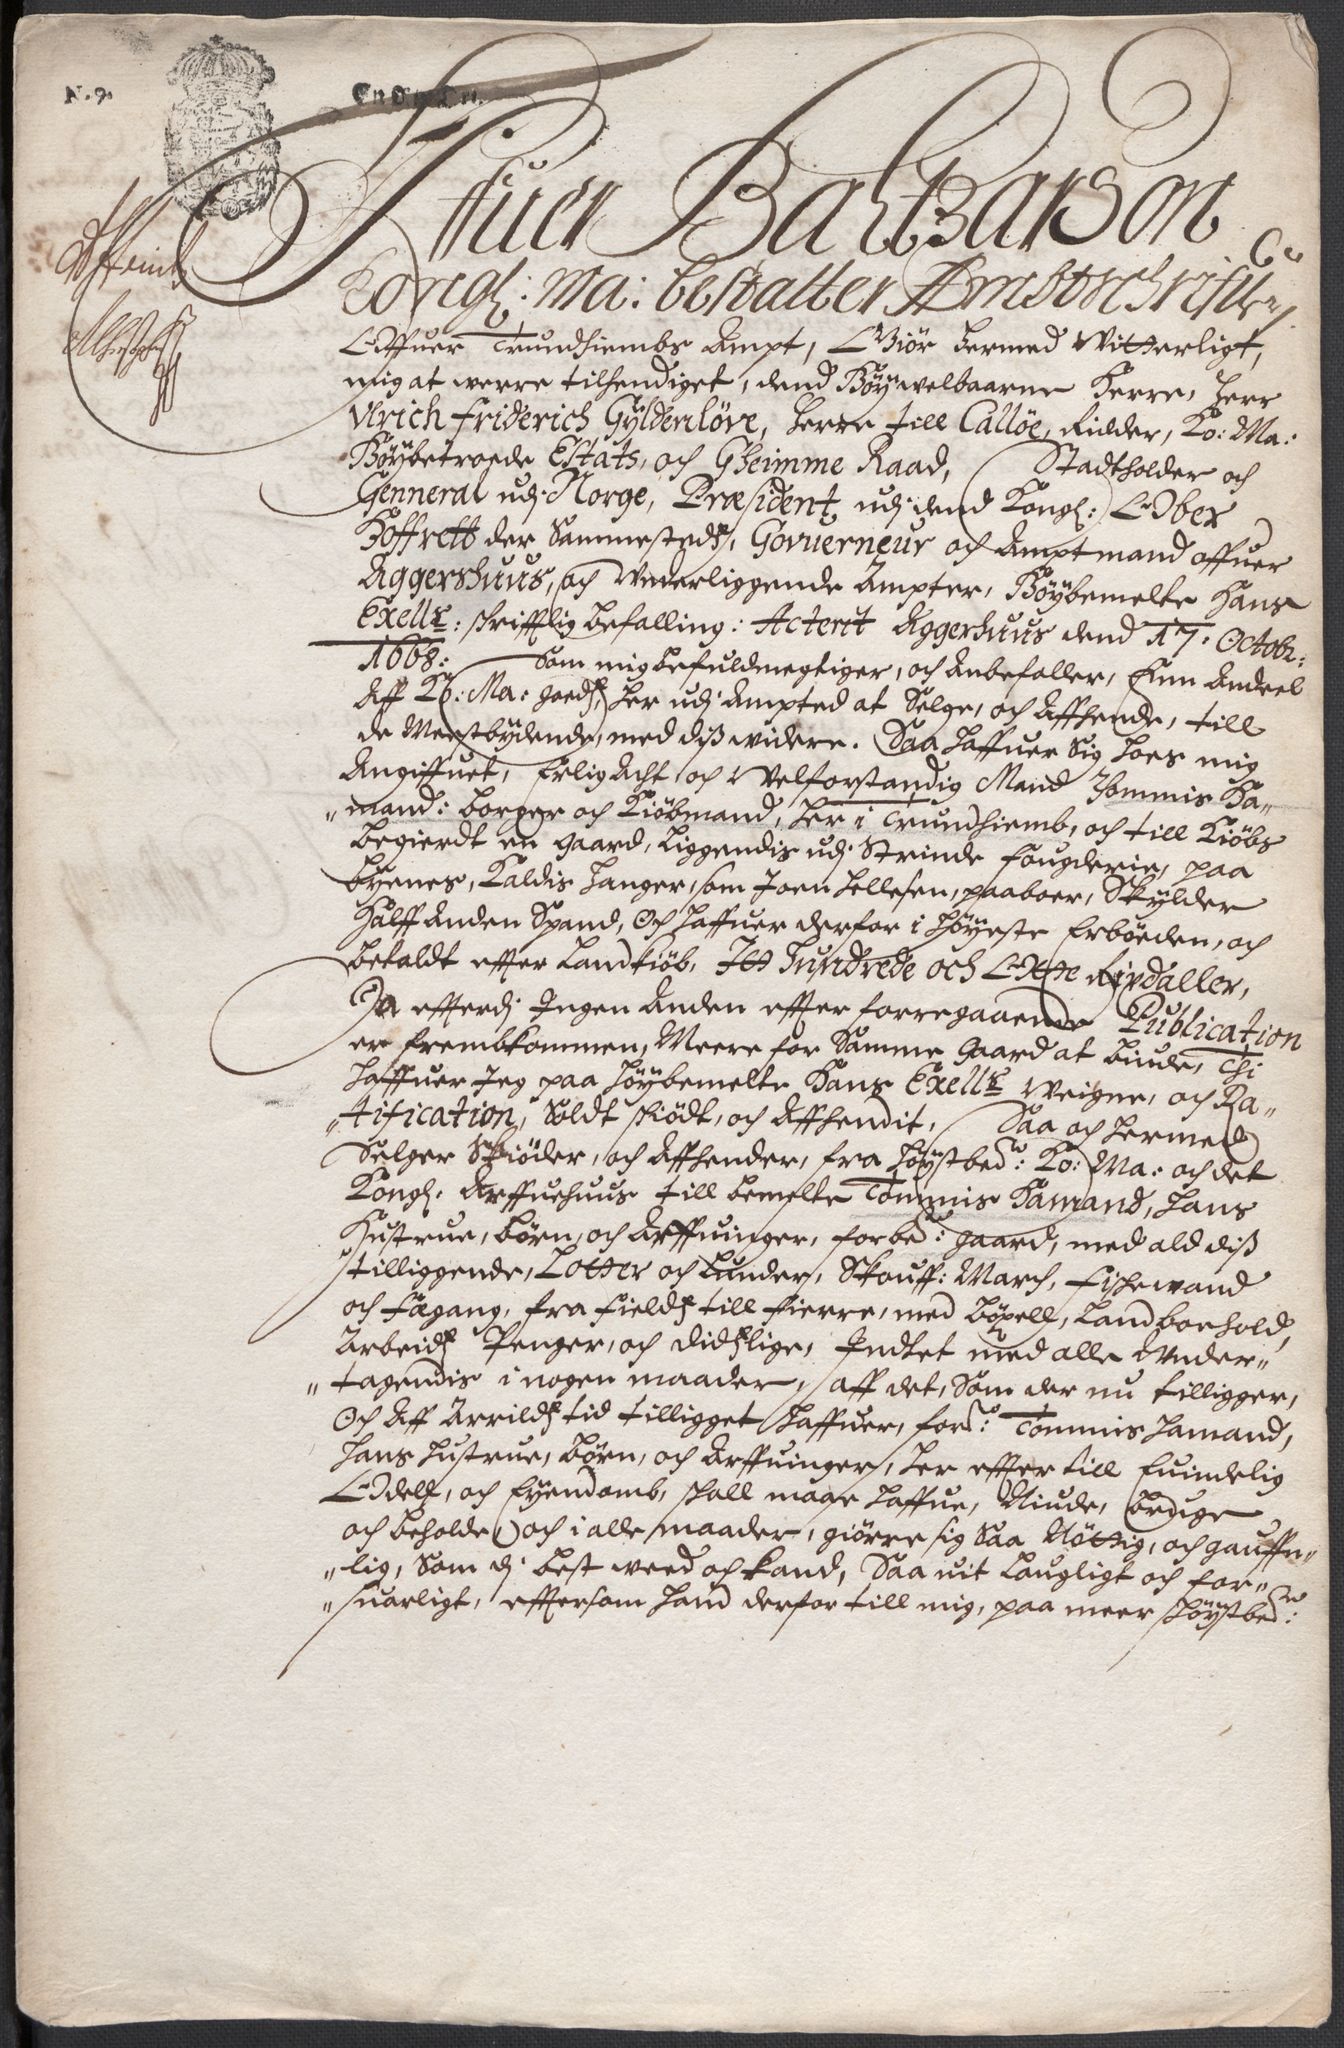 N. 9.
Iffuer Baltzarson
Kongl: Ma: bestalter Ambtschrifuer
Offuer Trundhiembs Ampt, Giör hermed Witterligt,
mig at werre tilhendiget, dend Höÿwelbaarne Herre, Herr
Ulrich Friderich Gÿldenlöve, Herre till Callöe, Ridder, Ko: Ma:
Höÿbetroede Estats, och Gheimme Raad, Stadtholder och
Genneral udj Norge, Præsident udj dend Kongl: Ober
Hoffrett der Sammesteds, Govuerneur och Amptmand offuer
Aggershuus, och Underliggende Ampter, Höÿbemelte Hans
Exells: skrifftlig befalling: Acterit Aggershuus dend 17. Octobr:
1668: Som mig befuldmegtiger, och Anbefaller, Einn Andeel
Aff Ko: Ma: goeds, her udj Ampted at Selge, och Affhende, till
de Meestbÿdende, med diß widere. Saa haffuer Sig hoes mig
Angiffuet, Erlig Acht och Velforstandig Mand Thommis Ha-
"mand: borger och Kiöbmand, her i Trundhiemb, och till Kiöbs
begierdt en gaard, liggendis udj Strinde fougderie, paa
Byenes, Kaldis hanger, som Joen hellesen, paaboer, Skÿlder
Halff Anden Spand, Och haffuer derfor i höÿeste Erböeden, och
betaldt effter Landkiöb, Itt Hundrede och Otte Rixdaller,
Da efterdj Ingen Anden effter forregaaende Publication
er frembkommen, Meere for Samme Gaard at biude, Thi
haffuer Jeg paa höÿbemelte Hans Exells Veigne, och Ra-
"tification, Soldt skiödt, och Affhendit, Saa och hermed
Selger Skiöder, och Affhender, fra höÿstbede: Ko: Ma: och det
Kongl. Arffuehuus till bemelte Tommis Hamand, hans
Hustrue, börn, och Arffuinger, forbede: gaard, med ald diß
tilliggende, Lotter och Lunder, Skouff: March, Fischewand
och Fægang, fra Fields till Fierre, med böxell, Landboehold,
Arbeids Penger, och didslige, Indtet med alle Under-
"tagendis i nogen maader, aff det, Som der nu tilligger,
Och Aff Arrilds tid tilligget haffuer, forde: Tommis Hamand,
hans hustrue, börn, och Arffuinger, her effter till Euindelig
Odell, och Eÿendomb, skall maae haffue, Niude, bruge
och beholde, och i alle maader, giörre sig Saa Nöttig, och gauffn-
"lig, Som dj best weed och kand, Saa uit Laugligt och for-
"suarligt, effterson hand derfor till mig, paa meer höÿstbede: